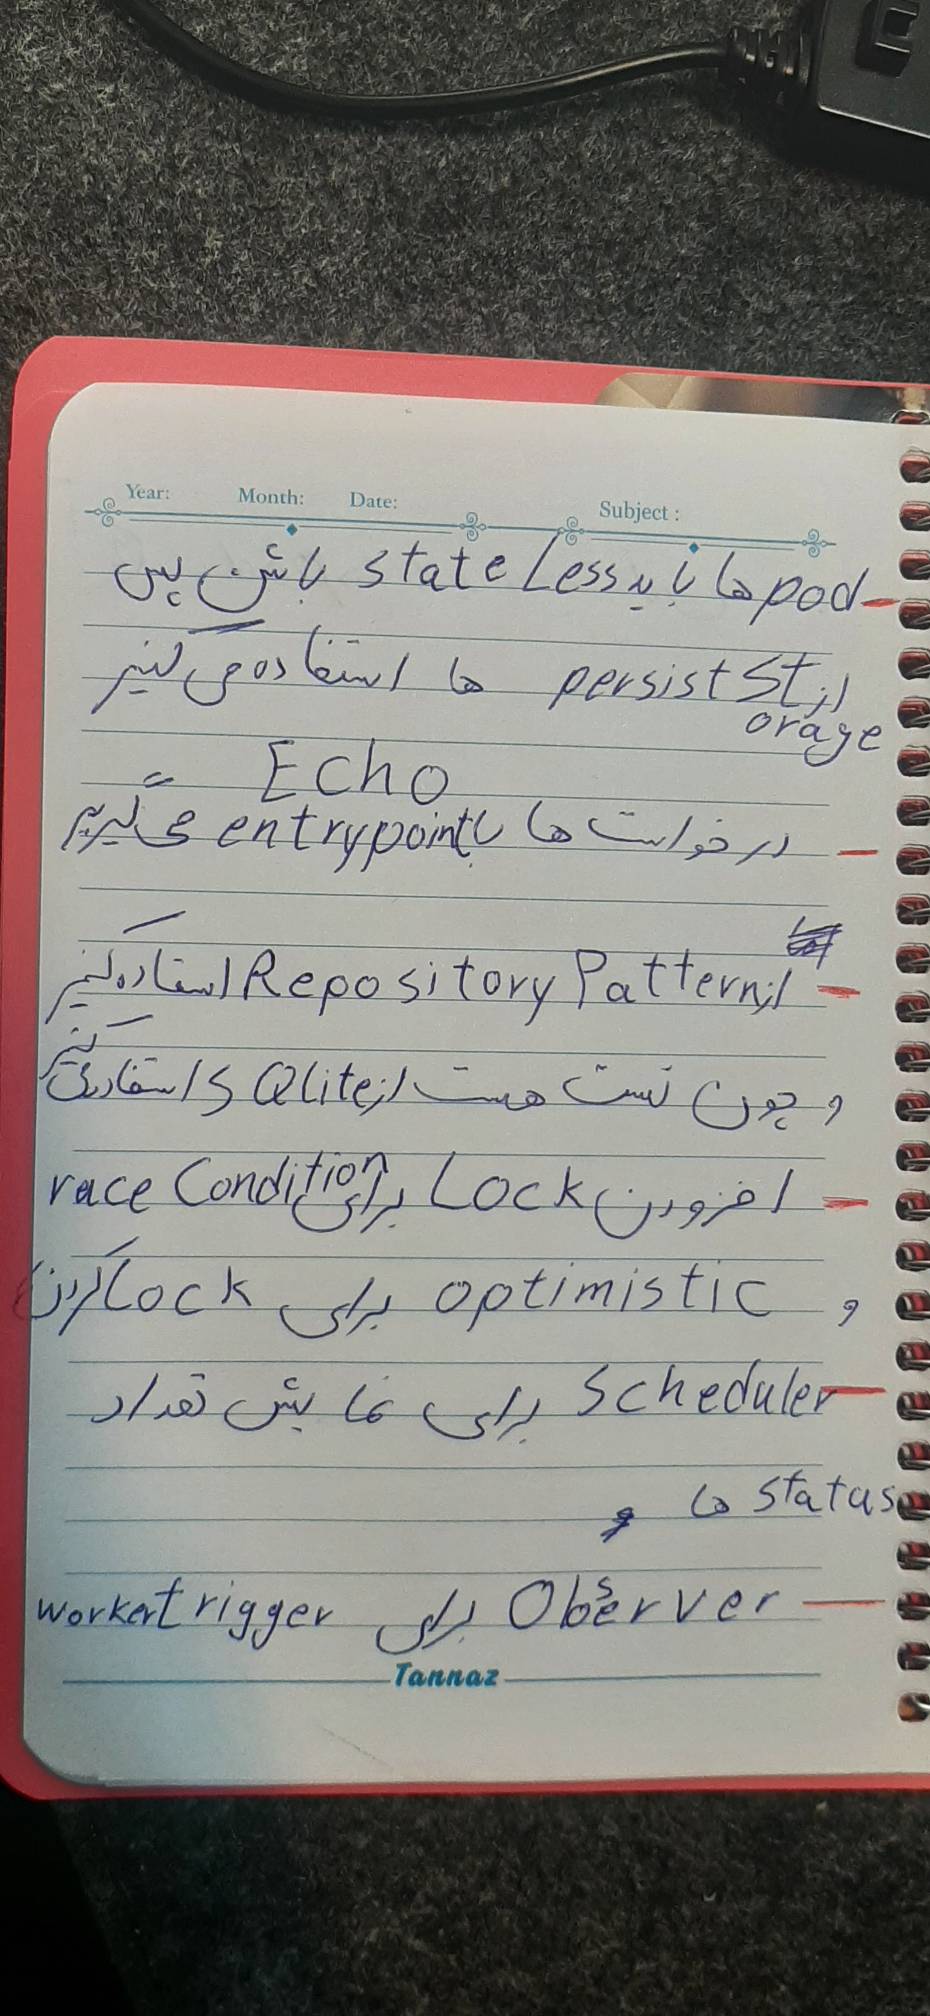 Year: Month: Date: Subject :
- pod ها باید stateLess باشن پس
از persist Storage ها استفاده می کنیم
Echo
- درخواست ها با entrypoint می گیریم
- از Repository Pattern استفاده کنیم
و چون تست هست از SQlite استفاده می کنیم
- افزودن Lock برای race Condition
و optimistic برای Lock کردن
- Scheduler برای نمایش تعداد
status ها و
- Observer برای trigger worker
Tannaz